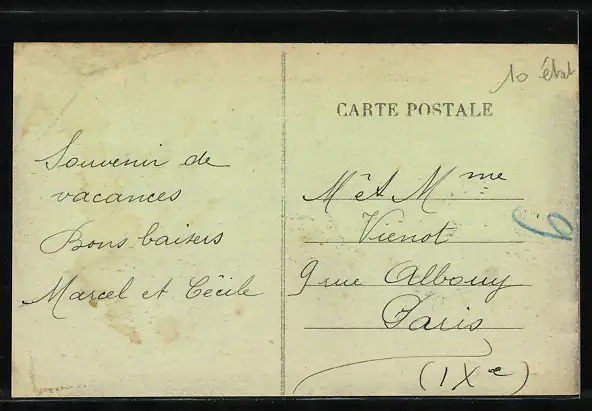 10 état
CARTE POSTALE
Souvenir de
vacances
Bons baisers
Marcel et Cécile
M et Mme
Vienot
9 rue Albouy
Paris
(IXe)
6